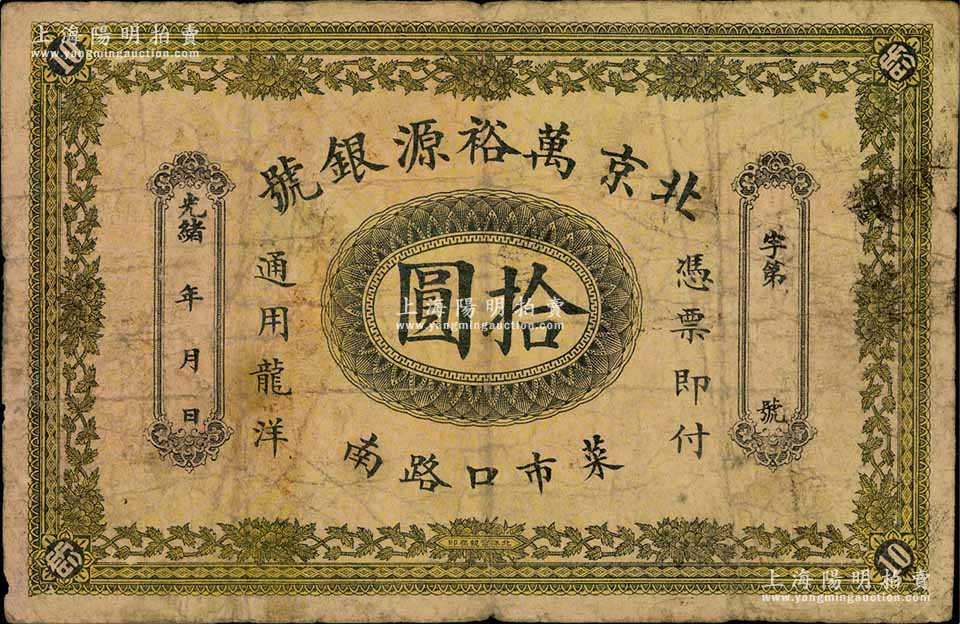 上海陽明拍賣
www.yangmingauction.com
10
拾
北京萬裕源銀號
字第 號
憑票即付
拾圓
上海陽明拍賣
www.yangmingauction.com
通用龍洋
光緒 年 月 日
菜市口路南
拾
10
上海陽明拍賣
www.yangmingauction.com